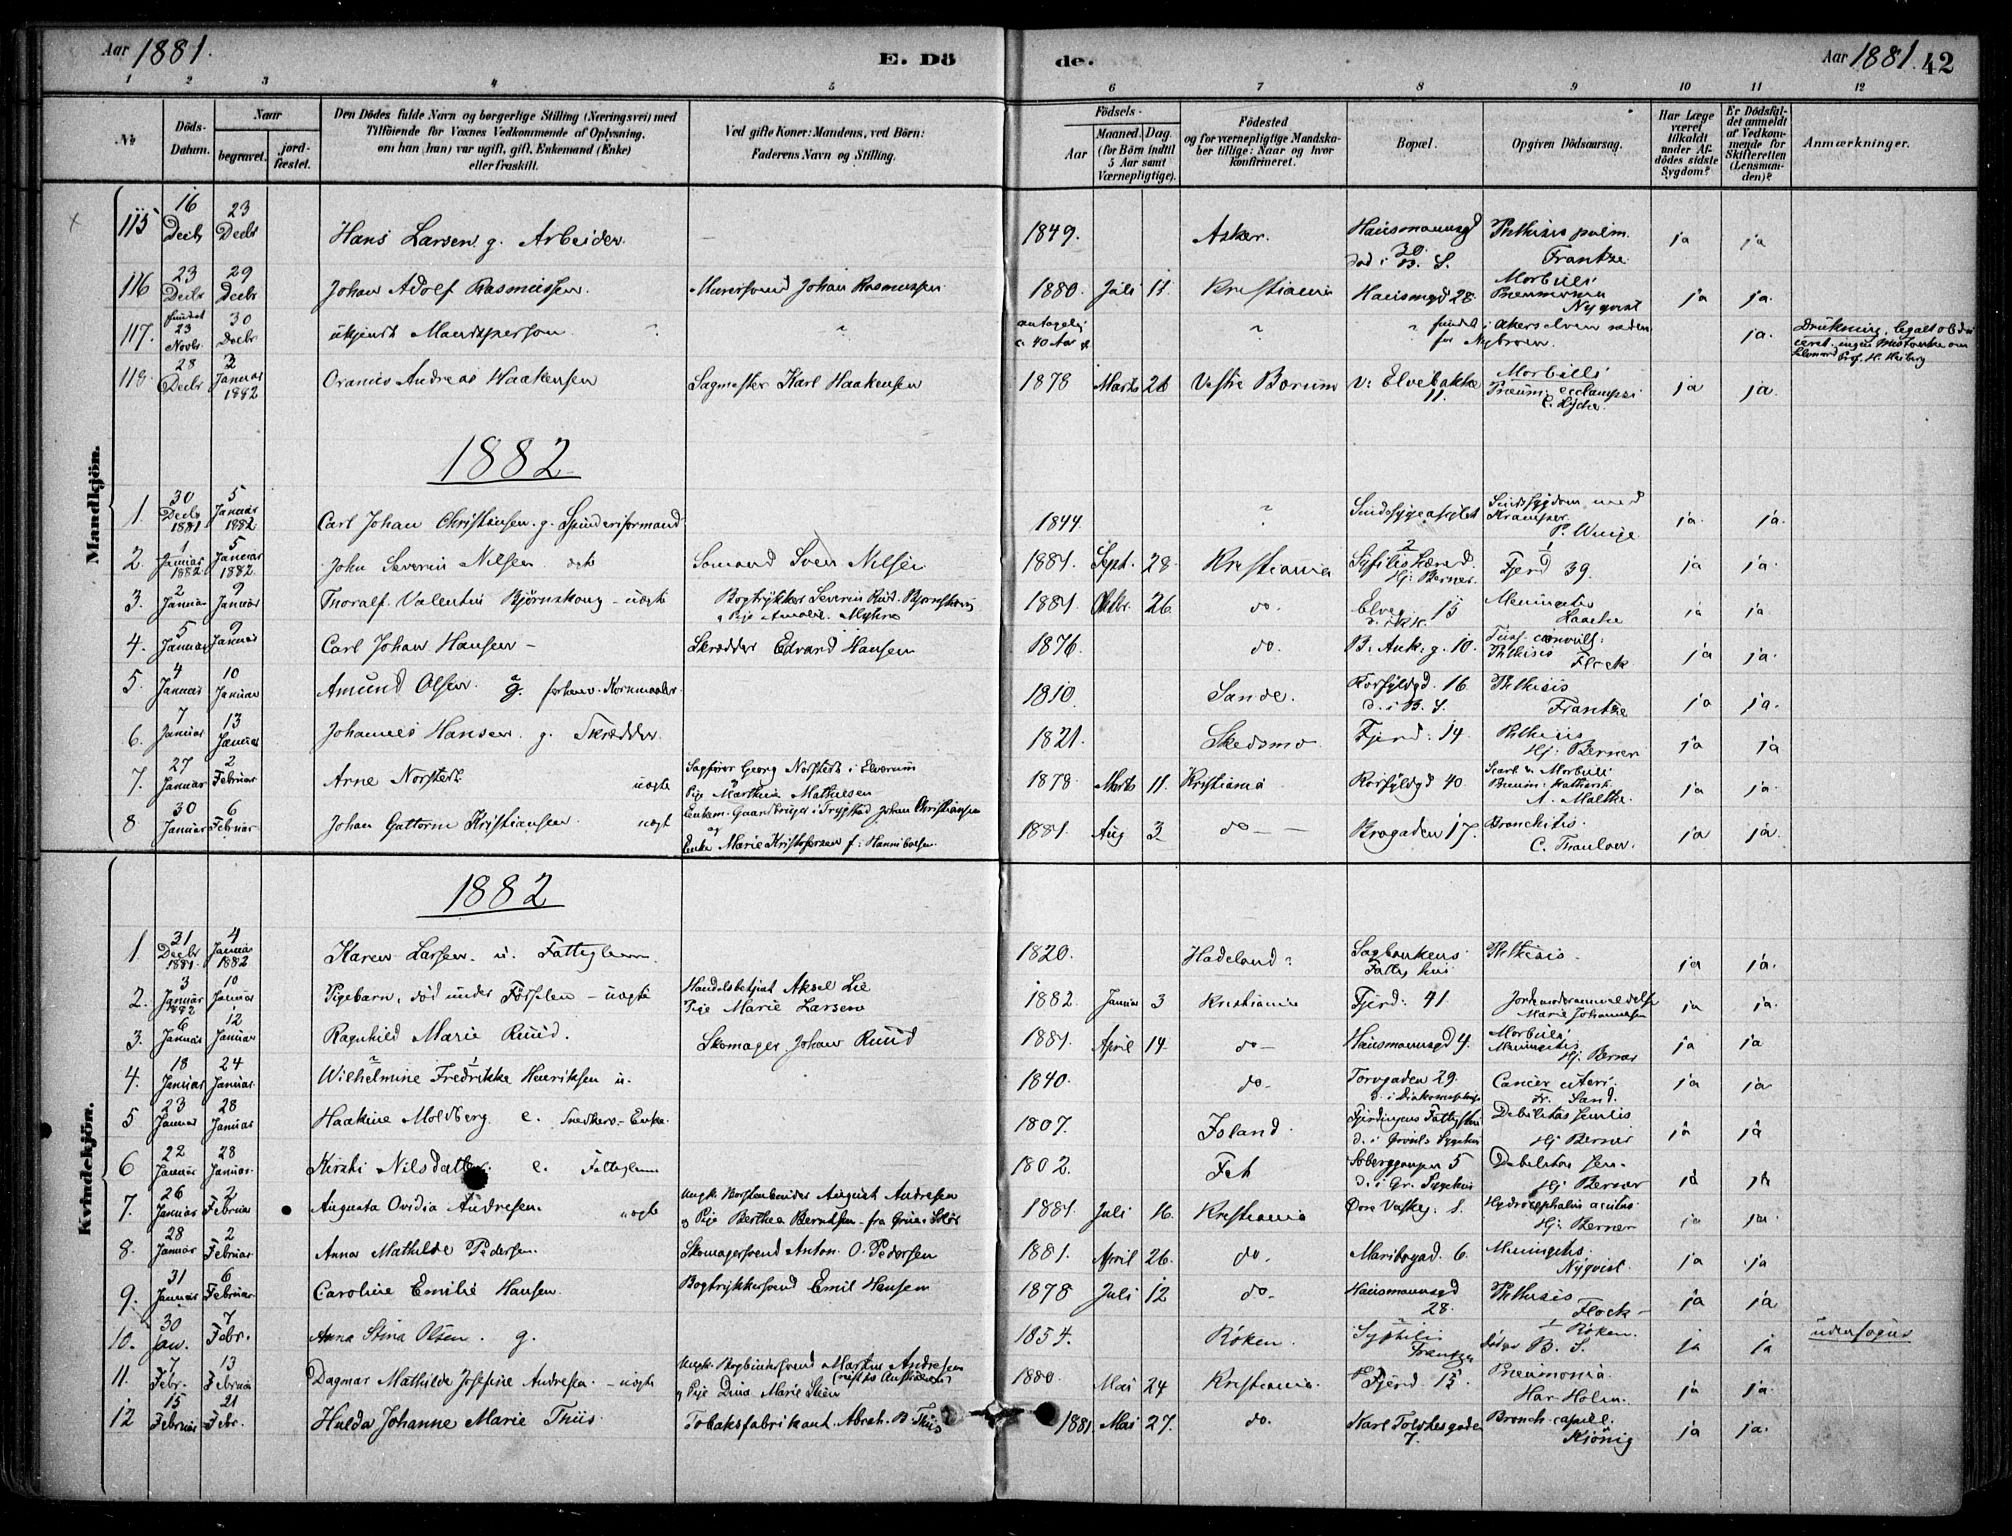 Aar 1881.
E. Dö de.
Aar 1881. 42
1 2 3 4 5 6 7 8 9 10 11 12
No
Döds-Datum.
Naar
begravet.
jord-fæstet.
Den Dödes fulde Navn og borgerlige Stilling (Næringsvei) med
Tilföiende for Voxnes Vedkommende af Oplysning,
om han (hun) var ugift, gift, Enkemand (Enke)
eller fraskilt.
Ved gifte Koner: Mandens, ved Börn:
Faderens Navn og Stilling.
Födsels-
Aar
Maaned. Dag.
(for Börn indtil
5 Aar samt
Værnepligtige).
Födested
og for værnepligtige Mandska-
ber tillige: Naar og hvor
konfirmeret.
Bopæl.
Opgiven Dödsaarsag.
Har Læge
været
tilkaldt
under Af-
dödes sidste
Sygdom?
Er Dödsfal-
det anmeldt
af Vedkom-
mende for
Skifteretten
(Lensman-
den)?
Anmærkninger.
Mandkjön.
115 16 Decbr 23 Decbr Hans Larsen g. Arbeider. 1849. Asker. Hausmannsgd 30. död i B. S. Phthisis pulm. Frantze ja ja
116 23 Decbr 29 Decbr Johan Adolf Rasmussen. Murersvend Johan Rasmussen 1880 Juli 11 Kristiania Hausmgd 28. Morbilli Pneumonia Nyqvist ja ja.
117. fundet 23 Novbr. 30 Decbr ukjendt Mandsperson. antagelig c. 40 Aar fundet i Akerselven neden for Nybroen. ja. Drukning, legalt obdu
ceret. ingen Mistanke om Prof. H. Heiberg
118. 28 Decbr 2 Januar 1882 Oranius Andreas Haakensen Sagmester Karl Haakensen 1878 Marts 26 Vestre Bærum V: Elvebakke 11. Morbilli Pneum. eclampsi E. Lyche. ja ja.
1882
1. 30 Decbr 1881 5 Januar 1882 Carl Johan Christiansen. g. Spinderiformand 1844 Sindssygeasylet Sindssygdom med Kramper P. Winge ja. ja.
2. 1 Januar 1882. 5 Januar 1882. John Severin Nilsen ... Sömand Sven Nilsen 1881. Sept. 28. Kristiania Fjerd 39. Syfilis hæred. Hj: Berner. ja ja.
3. 2 Januar 9 Januar Thoralf Valentin Björnskoug - uægte Bogtrykker Severin ... Björnskoug
& Pige Amalie Myhre 1881. Oktbr. 26. do. Elveg. 15 Meningitis Haache ja ja.
4. 5 Januar 9 Januar Carl Johan Hansen - Skrædder Edvard Hansen 1876 do. B. Ank. g. 10. Tuss. convuls: Phthisis Flock ja ja.
5. 4 Januar 10 Januar Amund Olsen g. forhenv. Kornmaaler. 1810. Sande. Korsfyldgd. 16 d. i B. S. Phthisis Frantze ja ja.
6. 7 Januar 13 Januar Johannes Hansen g. Skrædder. 1821. Skedsmo. Fjerd: 14. Phthisis Hj: Berner ja ja
7. 27 Januar 2 Februar Arne Norstedt uægte Sagförer Georg Norstedt i Elverum
Pige Marthia Mathiesen 1878 Marts 11. Kristiania Korsfyldgd 40 Scarl. & Morbilli. Pneum: Katharsh. A. Malthe. ja ja.
8 30 Januar 6 Februar Johan Guttorm Kristiansen uægt Enkem. Gaardbruger i Trygstad Johan Christiansen
og Enke Marie Kristofersen f: Hannibalsen 1881. Aug 3 do Brogaden 17. Bronchitis. C. Thaulow. ja ja.
Kvindekjön.
1882
1. 31 Decbr 1881. 4 Januar 1882 Karen Larsen. u. Fattiglem. 1820. Hadeland Sagbankens Fattighus Phthisis. ja ja.
2. 3 Januar 1882 10 Januar Pigebarn, död under Förselen - uægte Handelsbetjent Aksel Lie
Pige Marie Larsen 1882 Januar 3 Kristiania Fjerd: 41 Jordemoderanmeldelse Marie Johannesen ja ja.
3. 6 Januar 12 Januar Ragnhild Marie Ruud. Skomager Johan Ruud 1881. April 14. do - Hausmannsgd 4. Morbilli Meningitis Hj: Berner ja ja
4. 18 Januar 24 Januar. Wilhelmine Fredrikke Henriksen u. 1840. do. Torvgaden 29. Cancer uteri. Fr. Sand. ja ja
5 23 Januar 28 Januar Haakine Moldberg e. Snedkers-Enke. 1807. Fjerdingens Fattighus Debilitas senilis Hj Berner ja ja
6 22 Januar 28 Januar. Kirsti Nilsdatter e. Fattiglem 1802. Fet 5 Debilitas sen. Hj Berner ja ja
7. 26 Januar 2 Februar Augusta Ovidia Andresen. uægte Ungk. Börstenbinder August Andresen
& Pige Berthea Berntsen - fra Grue 1881. Juli 16 Kristiania Övre Vaskeg. 8. Hydrocephalus acutus Hj: Berner ja ja.
8. 28 Januar 2 Februar. Anna Mathilde Pedersen. Skomagersvend Anton O. Pedersen 1881. April 26. do. Maribogd. 6. Meningitis. Nyqvist. ja ja
9. 31 Januar 6 Februar. Caroline Emilie Hansen. Bogtrykkersvend Emil Hansen 1878 Juli 12 do. Hausmannsgd 28. Phthisis Flock ja ja
10. 30 Jan. 7 Febr. Anna Stina Olsen. g. 1854. Röken. Syphilis Frantze Röken. B. S. ja ja udensogns
11. 7 Febr. 13 Februar Dagmar Mathilde Josefine Andresen - uægte Ungk. Bogbindersvend Martin Andresen
& Pige Dina Marie Steen 1880. Mai 24 Kristiania. Fjerd. 15. Pneumonia. Har. Holm. ja ja
12 15 Februar 21 Febr. Hulda Johanne Marie Thiis. Tobaksfabrikant Abrah. B. Thiis 1881. Mai 27. do. Karl Toldnesgaden 7. Bronch. capill. Kiönig ja ja.